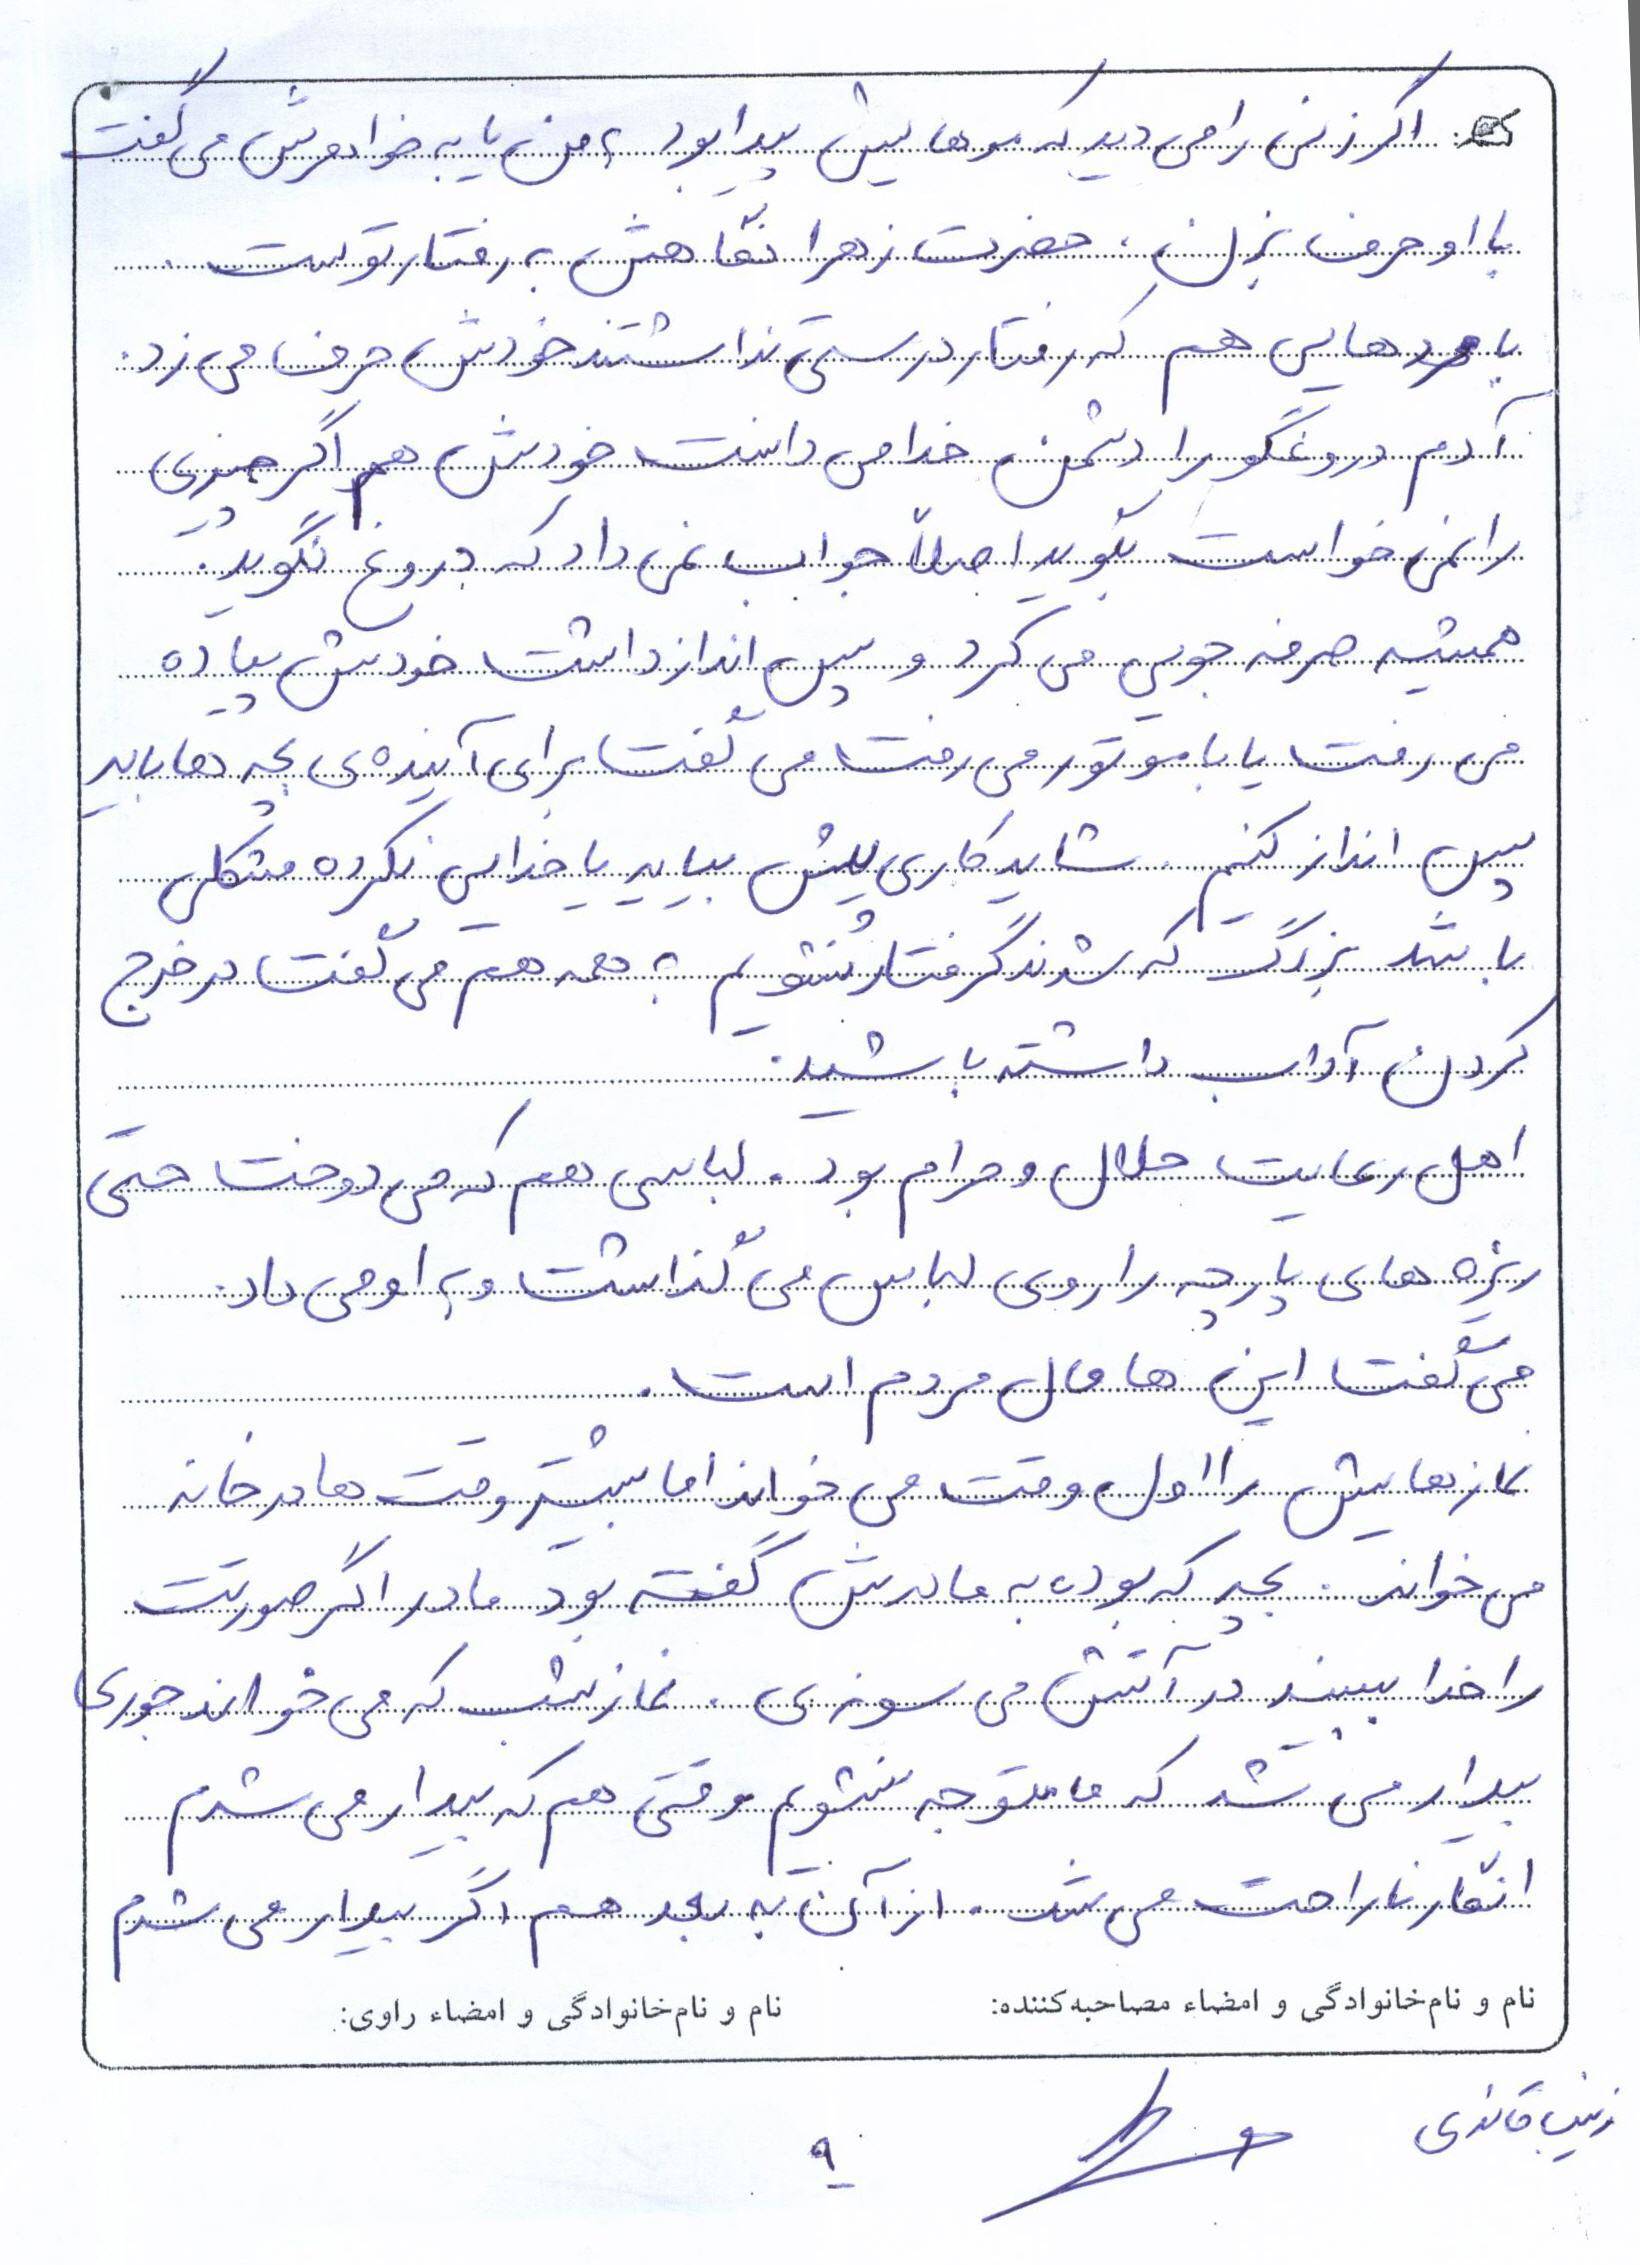 اگر زنی را می دید که موهایش پیدا بود به من یا به خواهرش می گفت
با او حرف بزن، حضرت زهرا نگاهش به رفتار توست.
با مردهایی هم که رفتار درستی نداشتند خودش حرف می زد.
آدم دروغگو را دشمن خدا می دانست خودش هم اگر چیزی
را نمی خواست بگوید اصلاً جواب نمی داد که دروغ نگوید.
همیشه صرفه جویی می کرد و پس انداز داشت خودش پیاده
می رفت یا با موتور می رفت می گفت برای آینده ی بچه ها باید
پس انداز کنیم شاید کاری پیش بیاید یا خدایی نکرده مشکلی
باشد بزرگ که شدند گرفتار نشویم به همه هم می گفت در خرج
کردن آداب داشته باشید.
اهل رعایت حلال و حرام بود. لباسی هم که می دوخت حتی
ریزه های پارچه را روی لباس می گذاشت و به او می داد.
می گفت این ها مال مردم است.
نمازهایش را اول وقت می خواند اما بیشتر وقت ها در خانه
می خواند. بچه که بوده به مادرش گفته بود مادر اگر صورتت
را خدا ببیند در آتش می سوزی. نماز شب که می خواند جوری
بیدار می شد که ما متوجه نشویم وقتی هم که بیدار می شدم
انگار ناراحت می شد. از آن به بعد هم اگر بیدار می شدم
نام و نام‌خانوادگی و امضاء مصاحبه‌کننده: نام و نام‌خانوادگی و امضاء راوی:
زینب قائدی
۹